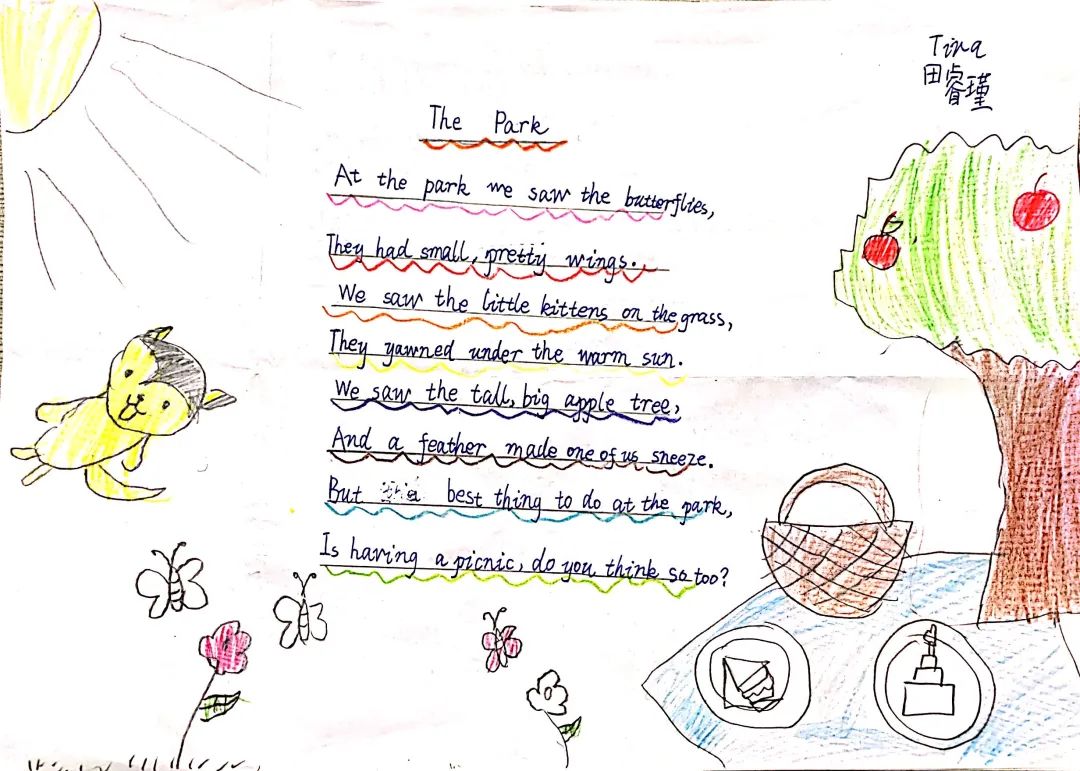 Tina
田睿瑾
The Park
At the park we saw the butterflies,
They had small, pretty wings.
We saw the little kittens on the grass,
They yawned under the warm sun.
We saw the tall, big apple tree,
And a feather made one of us sneeze.
But best thing to do at the park,
Is having a picnic, do you think so too?